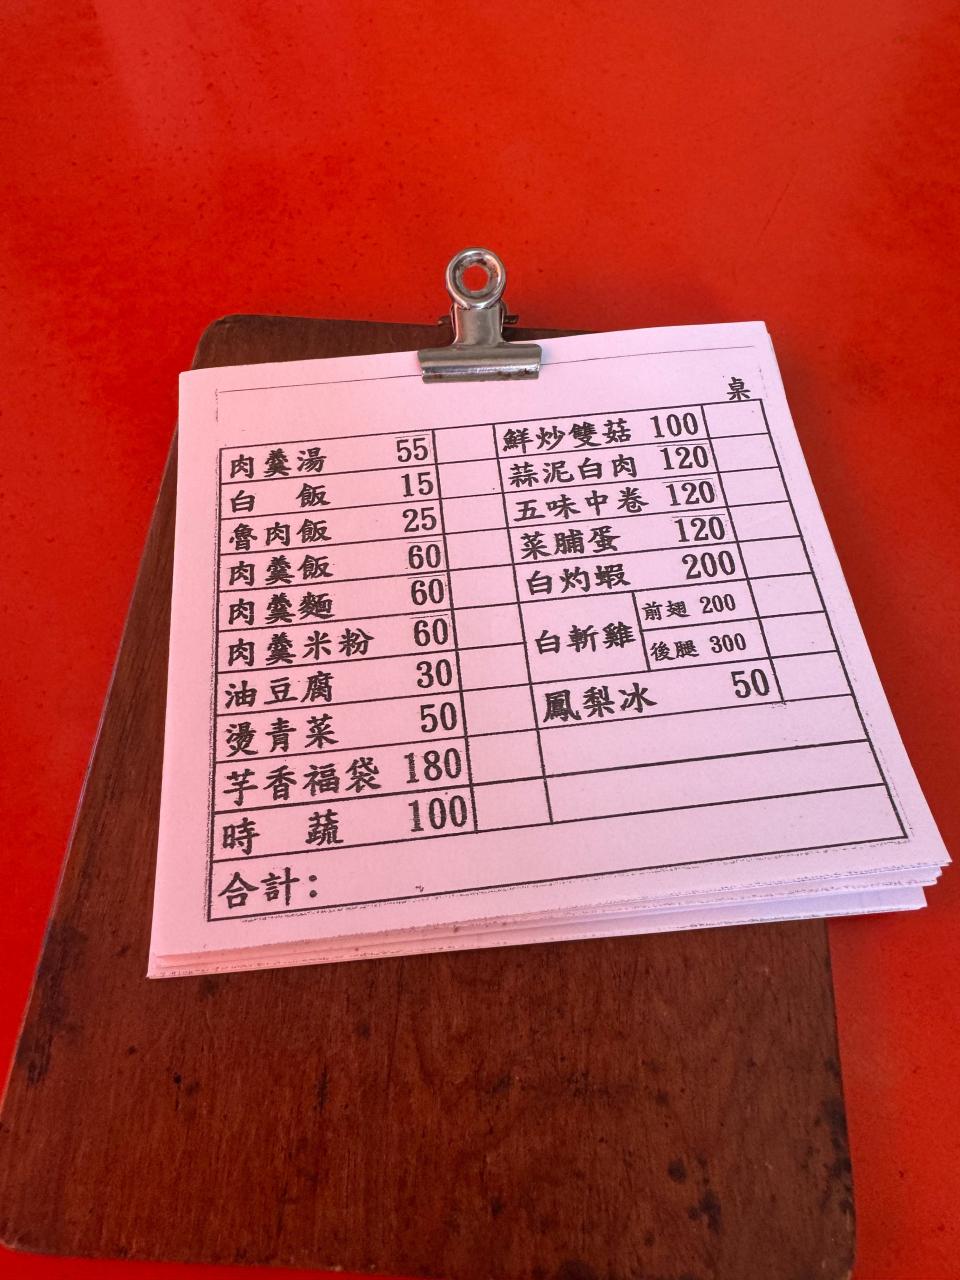 桌
肉羹湯 55
白 飯 15
魯肉飯 25
肉羹飯 60
肉羹麵 60
肉羹米粉 60
油豆腐 30
燙青菜 50
芋香福袋 180
時 蔬 100
鮮炒雙菇 100
蒜泥白肉 120
五味中卷 120
菜脯蛋 120
白灼蝦 200
白斬雞
前翅 200
後腿 300
鳳梨冰 50
合計: